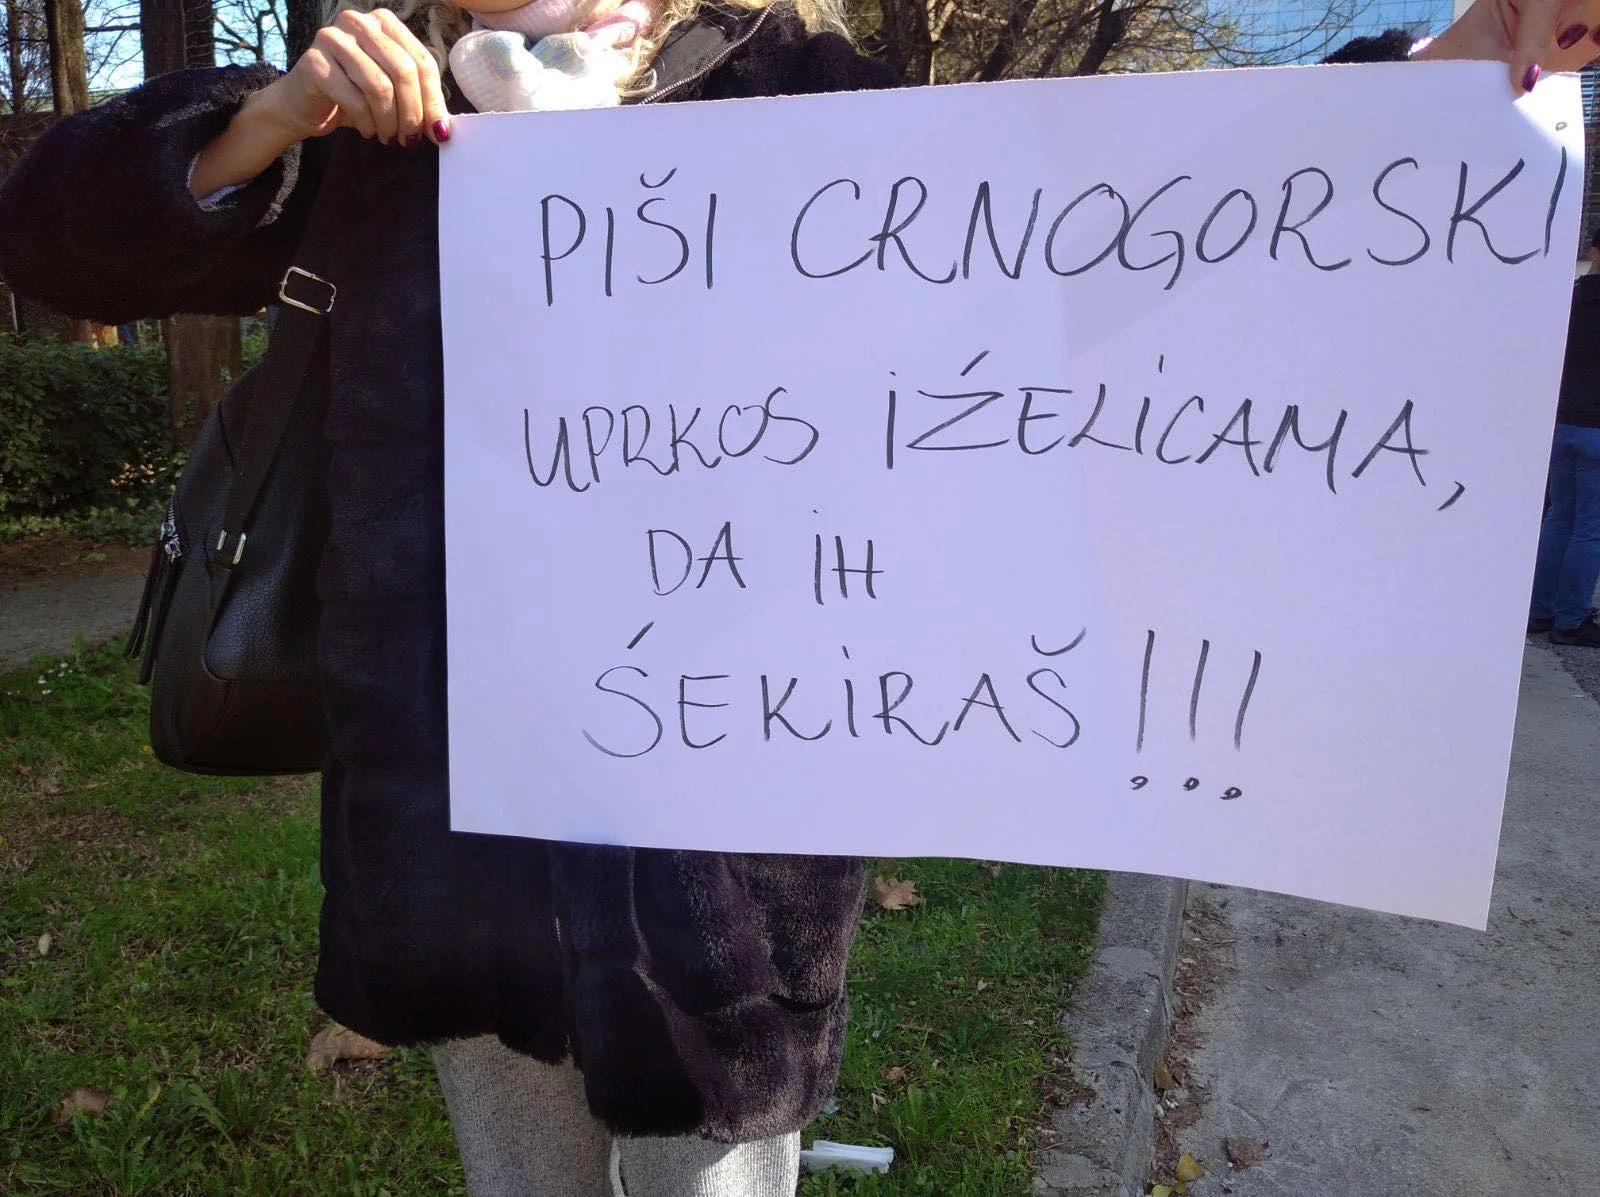 PIŠI CRNOGORSKI
UPRKOS IŹELICAMA,
DA IH
ŚEKIRAŠ!!!